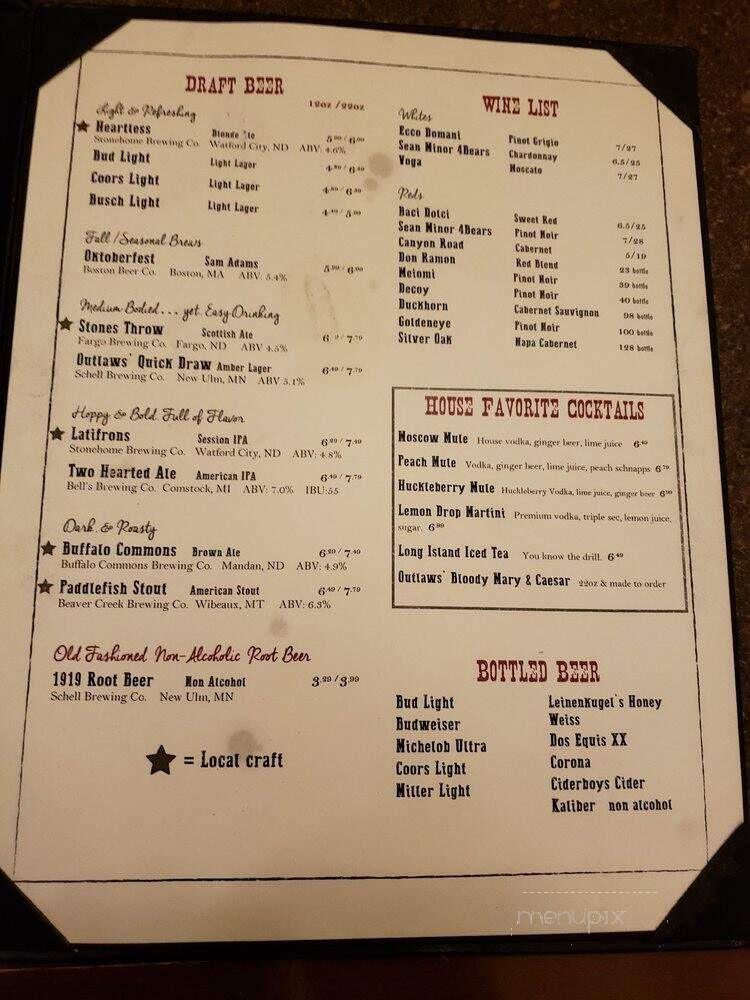 DRAFT BEER
12oz / 22oz
Light & Refreshing
★ Heartless Blonde Ale 5 / 6
Stonehome Brewing Co. Watford City, ND ABV: 4.6%
Bud Light Light Lager 4 / 6
Coors Light Light Lager 4 / 6
Busch Light Light Lager 4 / 5
Fall / Seasonal Brews
Oktoberfest Sam Adams 5 / 6
Boston Beer Co. Boston, MA ABV: 5.4%
Medium Bodied... yet, Easy Drinking
★ Stones Throw Scottish Ale 6 / 7.79
Fargo Brewing Co. Fargo, ND ABV 4.5%
Outlaws' Quick Draw Amber Lager 6.49 / 7.79
Schell Brewing Co. New Ulm, MN ABV 5.1%
Hoppy & Bold. Full of Flavor
★ Latifrons Session IPA 6.29 / 7.49
Stonehome Brewing Co. Watford City, ND ABV: 4.8%
Two Hearted Ale American IPA 6.49 / 7.79
Bell's Brewing Co. Comstock, MI ABV: 7.0% IBU:55
Dark & Roasty
★ Buffalo Commons Brown Ale 6.29 / 7.49
Buffalo Commons Brewing Co. Mandan, ND ABV: 4.9%
★ Paddlefish Stout American Stout 6.49 / 7.79
Beaver Creek Brewing Co. Wibeaux, MT ABV: 6.3%
Old Fashioned Non-Alcoholic Root Beer
1919 Root Beer Non Alcohol 3.29 / 3.99
Schell Brewing Co. New Ulm, MN
★ = Local craft
WINE LIST
Whites
Ecco Domani Pinot Grigio 7/27
Sean Minor 4Bears Chardonnay 6.5/25
Voga Moscato 7/27
Reds
Baci Dolci Sweet Red 6.5/25
Sean Minor 4Bears Pinot Noir 7/28
Canyon Road Cabernet 5/19
Don Ramon Red Blend 23 bottle
Meiomi Pinot Noir 39 bottle
Decoy Pinot Noir 40 bottle
Duckhorn Cabernet Sauvignon 98 bottle
Goldeneye Pinot Noir 100 bottle
Silver Oak Napa Cabernet 128 bottle
HOUSE FAVORITE COCKTAILS
Moscow Mule House vodka, ginger beer, lime juice 6.49
Peach Mule Vodka, ginger beer, lime juice, peach schnapps 6.79
Huckleberry Mule Huckleberry Vodka, lime juice, ginger beer 6.99
Lemon Drop Martini Premium vodka, triple sec, lemon juice,
sugar. 6.99
Long Island Iced Tea You know the drill. 6.49
Outlaws' Bloody Mary & Caesar 22oz & made to order
BOTTLED BEER
Bud Light
Budweiser
Michelob Ultra
Coors Light
Miller Light
Leinenkugel's Honey
Weiss
Dos Equis XX
Corona
Ciderboys Cider
Kaliber non alcohol
menupix